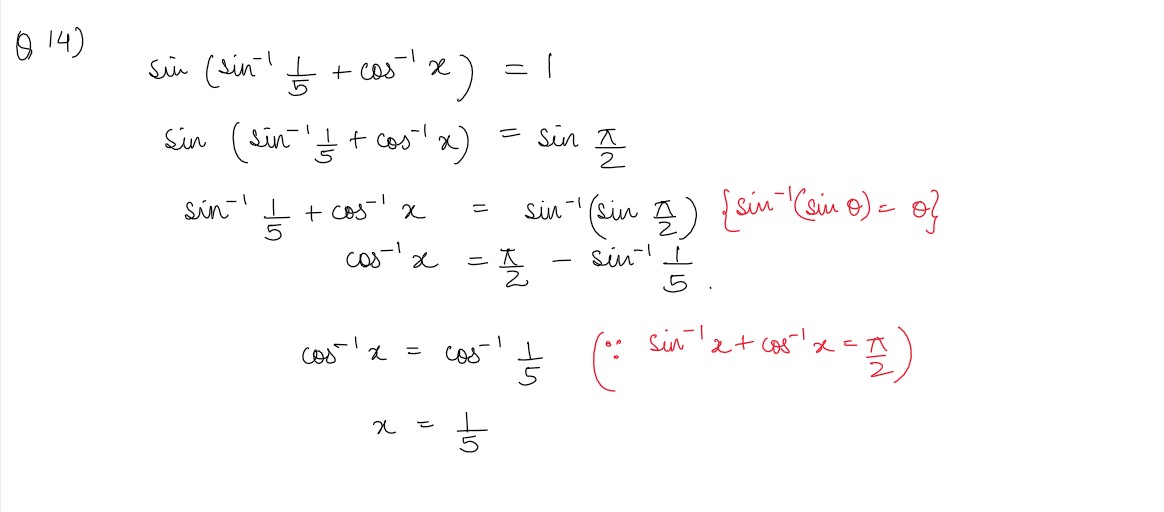 Q 14)
sin (sin⁻¹ 1/5 + cos⁻¹ x) = 1
sin (sin⁻¹ 1/5 + cos⁻¹ x) = sin π/2
sin⁻¹ 1/5 + cos⁻¹ x = sin⁻¹(sin π/2) {sin⁻¹(sin θ) = θ}
cos⁻¹ x = π/2 - sin⁻¹ 1/5 .
cos⁻¹ x = cos⁻¹ 1/5 (∵ sin⁻¹ x + cos⁻¹ x = π/2)
x = 1/5